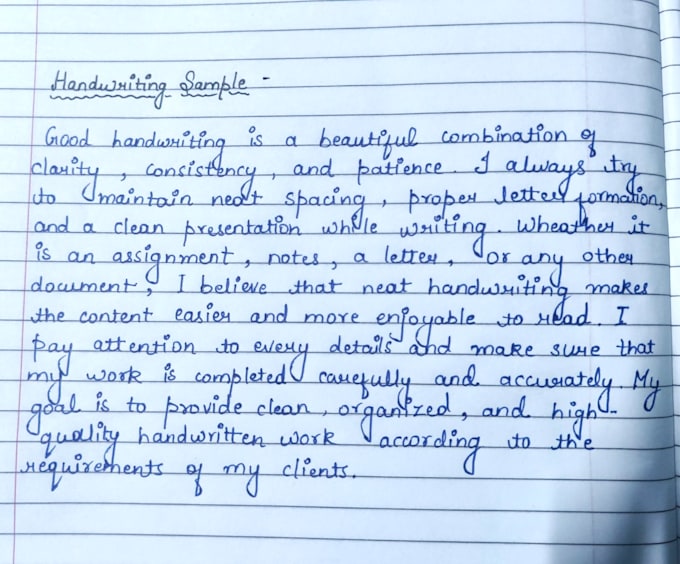 Handwriting Sample -
Good handwriting is a beautiful combination of
clarity, consistency, and patience. I always try
to maintain neat spacing, proper letter formation,
and a clean presentation while writing. Wheather it
is an assignment, notes, a letter, or any other
document, I believe that neat handwriting makes
the content easier and more enjoyable to read. I
pay attention to every details and make sure that
my work is completed carefully and accurately. My
goal is to provide clean, organized, and high-
quality handwritten work according to the
requirements of my clients.